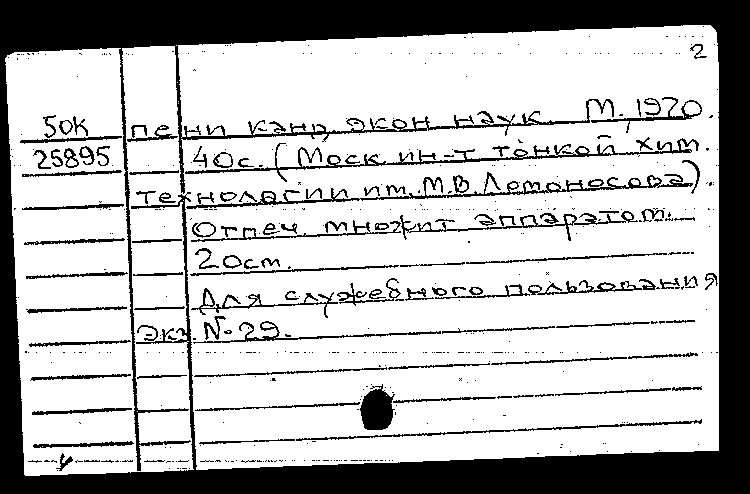 2
50К пени канд. экон. наук. М., 1970.
25895 40с. (Моск. ин-т тонкой хим.
технологии им. М.В. Ломоносова).
Отпеч. множит. аппаратом.
20см.
Для служебного пользования
Экз. №29.